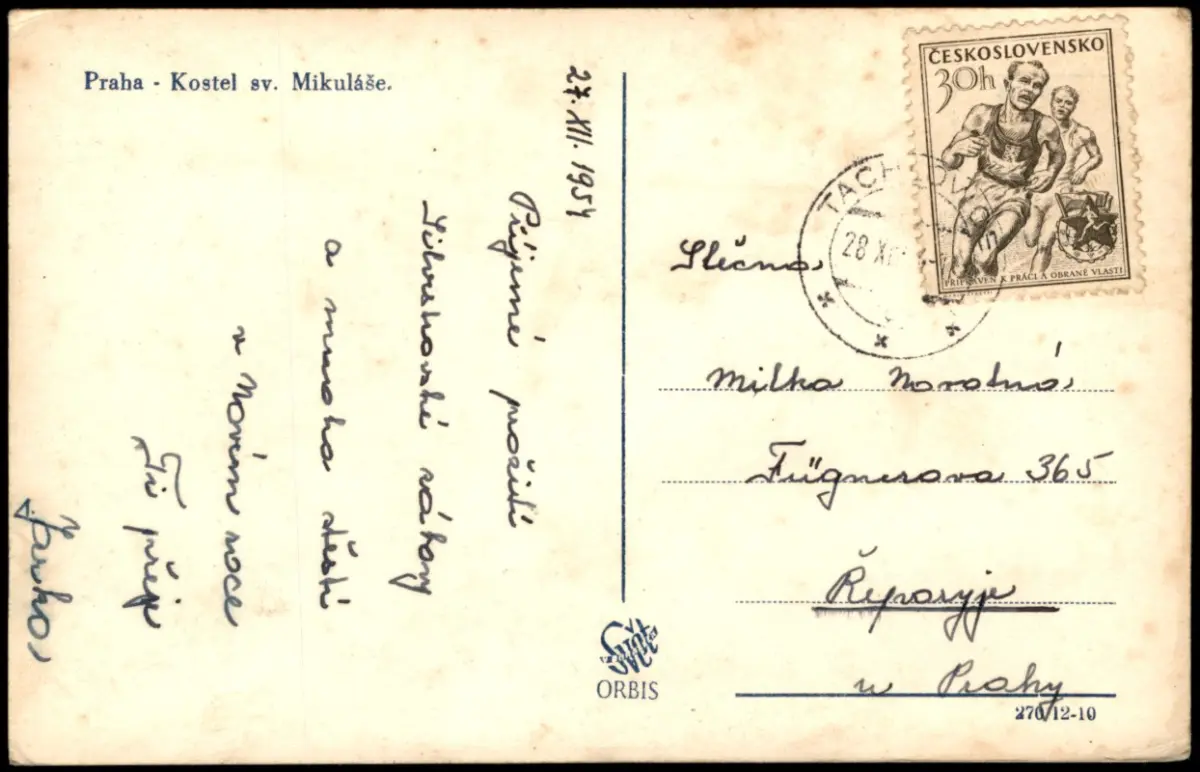 Praha - Kostel sv. Mikuláše.
27. XII. 1954
Příjemné prožití
Silvestrovské zábavy
a mnoho štěstí
v Novém roce
Ti přeje
Jarka
ČESKOSLOVENSKO
30h
PŘIPRAVEN K PRÁCI A OBRANĚ VLASTI
TACHOV
28 XII
Slečna
Milka Novotná
Fügnerova 365
Řeporyje
u Prahy
ORBIS
270/12-10